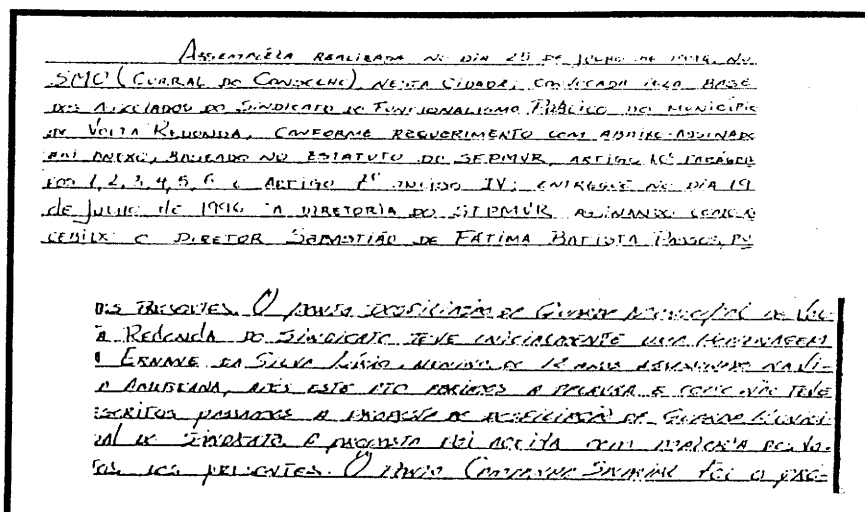 Assembléia realizada no dia 25 de julho de 1996, no
SMC (Curral do Conselho), nesta cidade, convocada pela base
dos associados do Sindicato do Funcionalismo Público do Município
de Volta Redonda, conforme requerimento com abaixo-assinado
em anexo, baseado no Estatuto do SFPMVR, artigo
1, 2, 3, 4, 5, 6 e Artigo inciso IV; entregue no dia 19
de Julho de 1996 a diretoria do SFPMVR, assinando
o diretor Sebastião de Fátima Batista
presentes. O ponto desfiliação da Guarda Municipal de Vol-
a Redonda do Sindicato teve inicialmente uma homenagem
Ernane da Silva Lúcio, menino de 12 anos assassinado na
após este ato abrimos a palavra e como não teve
inscritos passamos a proposta de desfiliação da Guarda Munici-
al do Sindicato. A proposta foi aceita com maioria
dos presentes. O ponto Campanha Salarial foi o